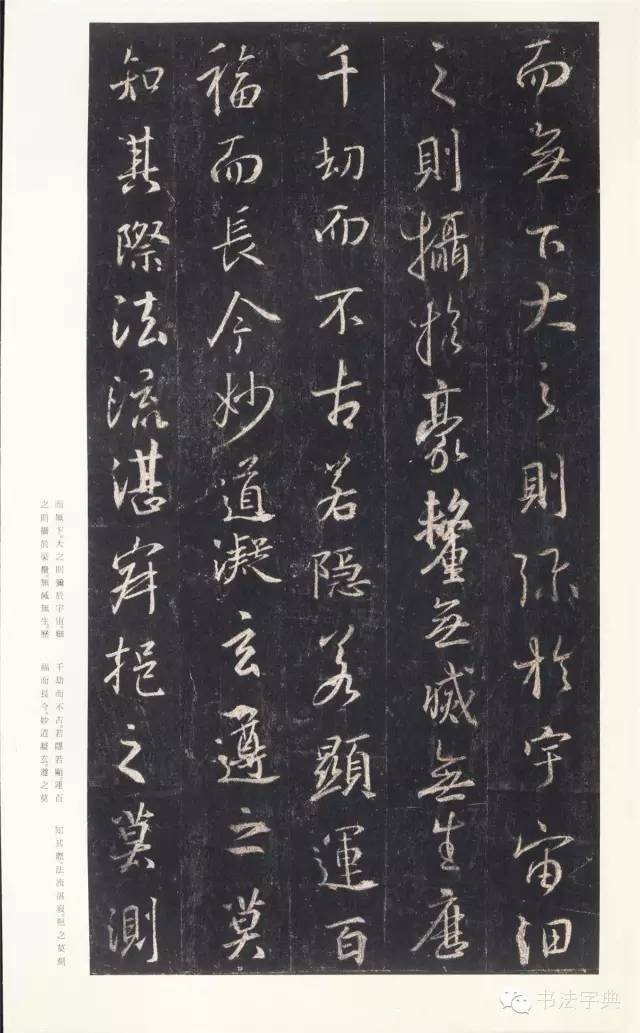 而無下大之則彌於宇宙細
之則攝於豪氂無滅無生歷
千劫而不古若隱若顯運百
福而長今妙道凝玄遵之莫
知其際法流湛寂挹之莫測
而無下。大之則彌於宇宙。細
之則攝於豪氂。無滅無生。歷
千劫而不古。若隱若顯。運百
福而長今。妙道凝玄。遵之莫
知其際。法流湛寂。挹之莫測
书法字典